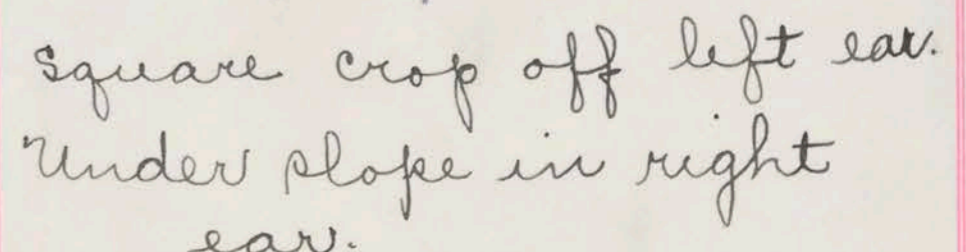 square crop off left ear.
Under slope in right
ear.